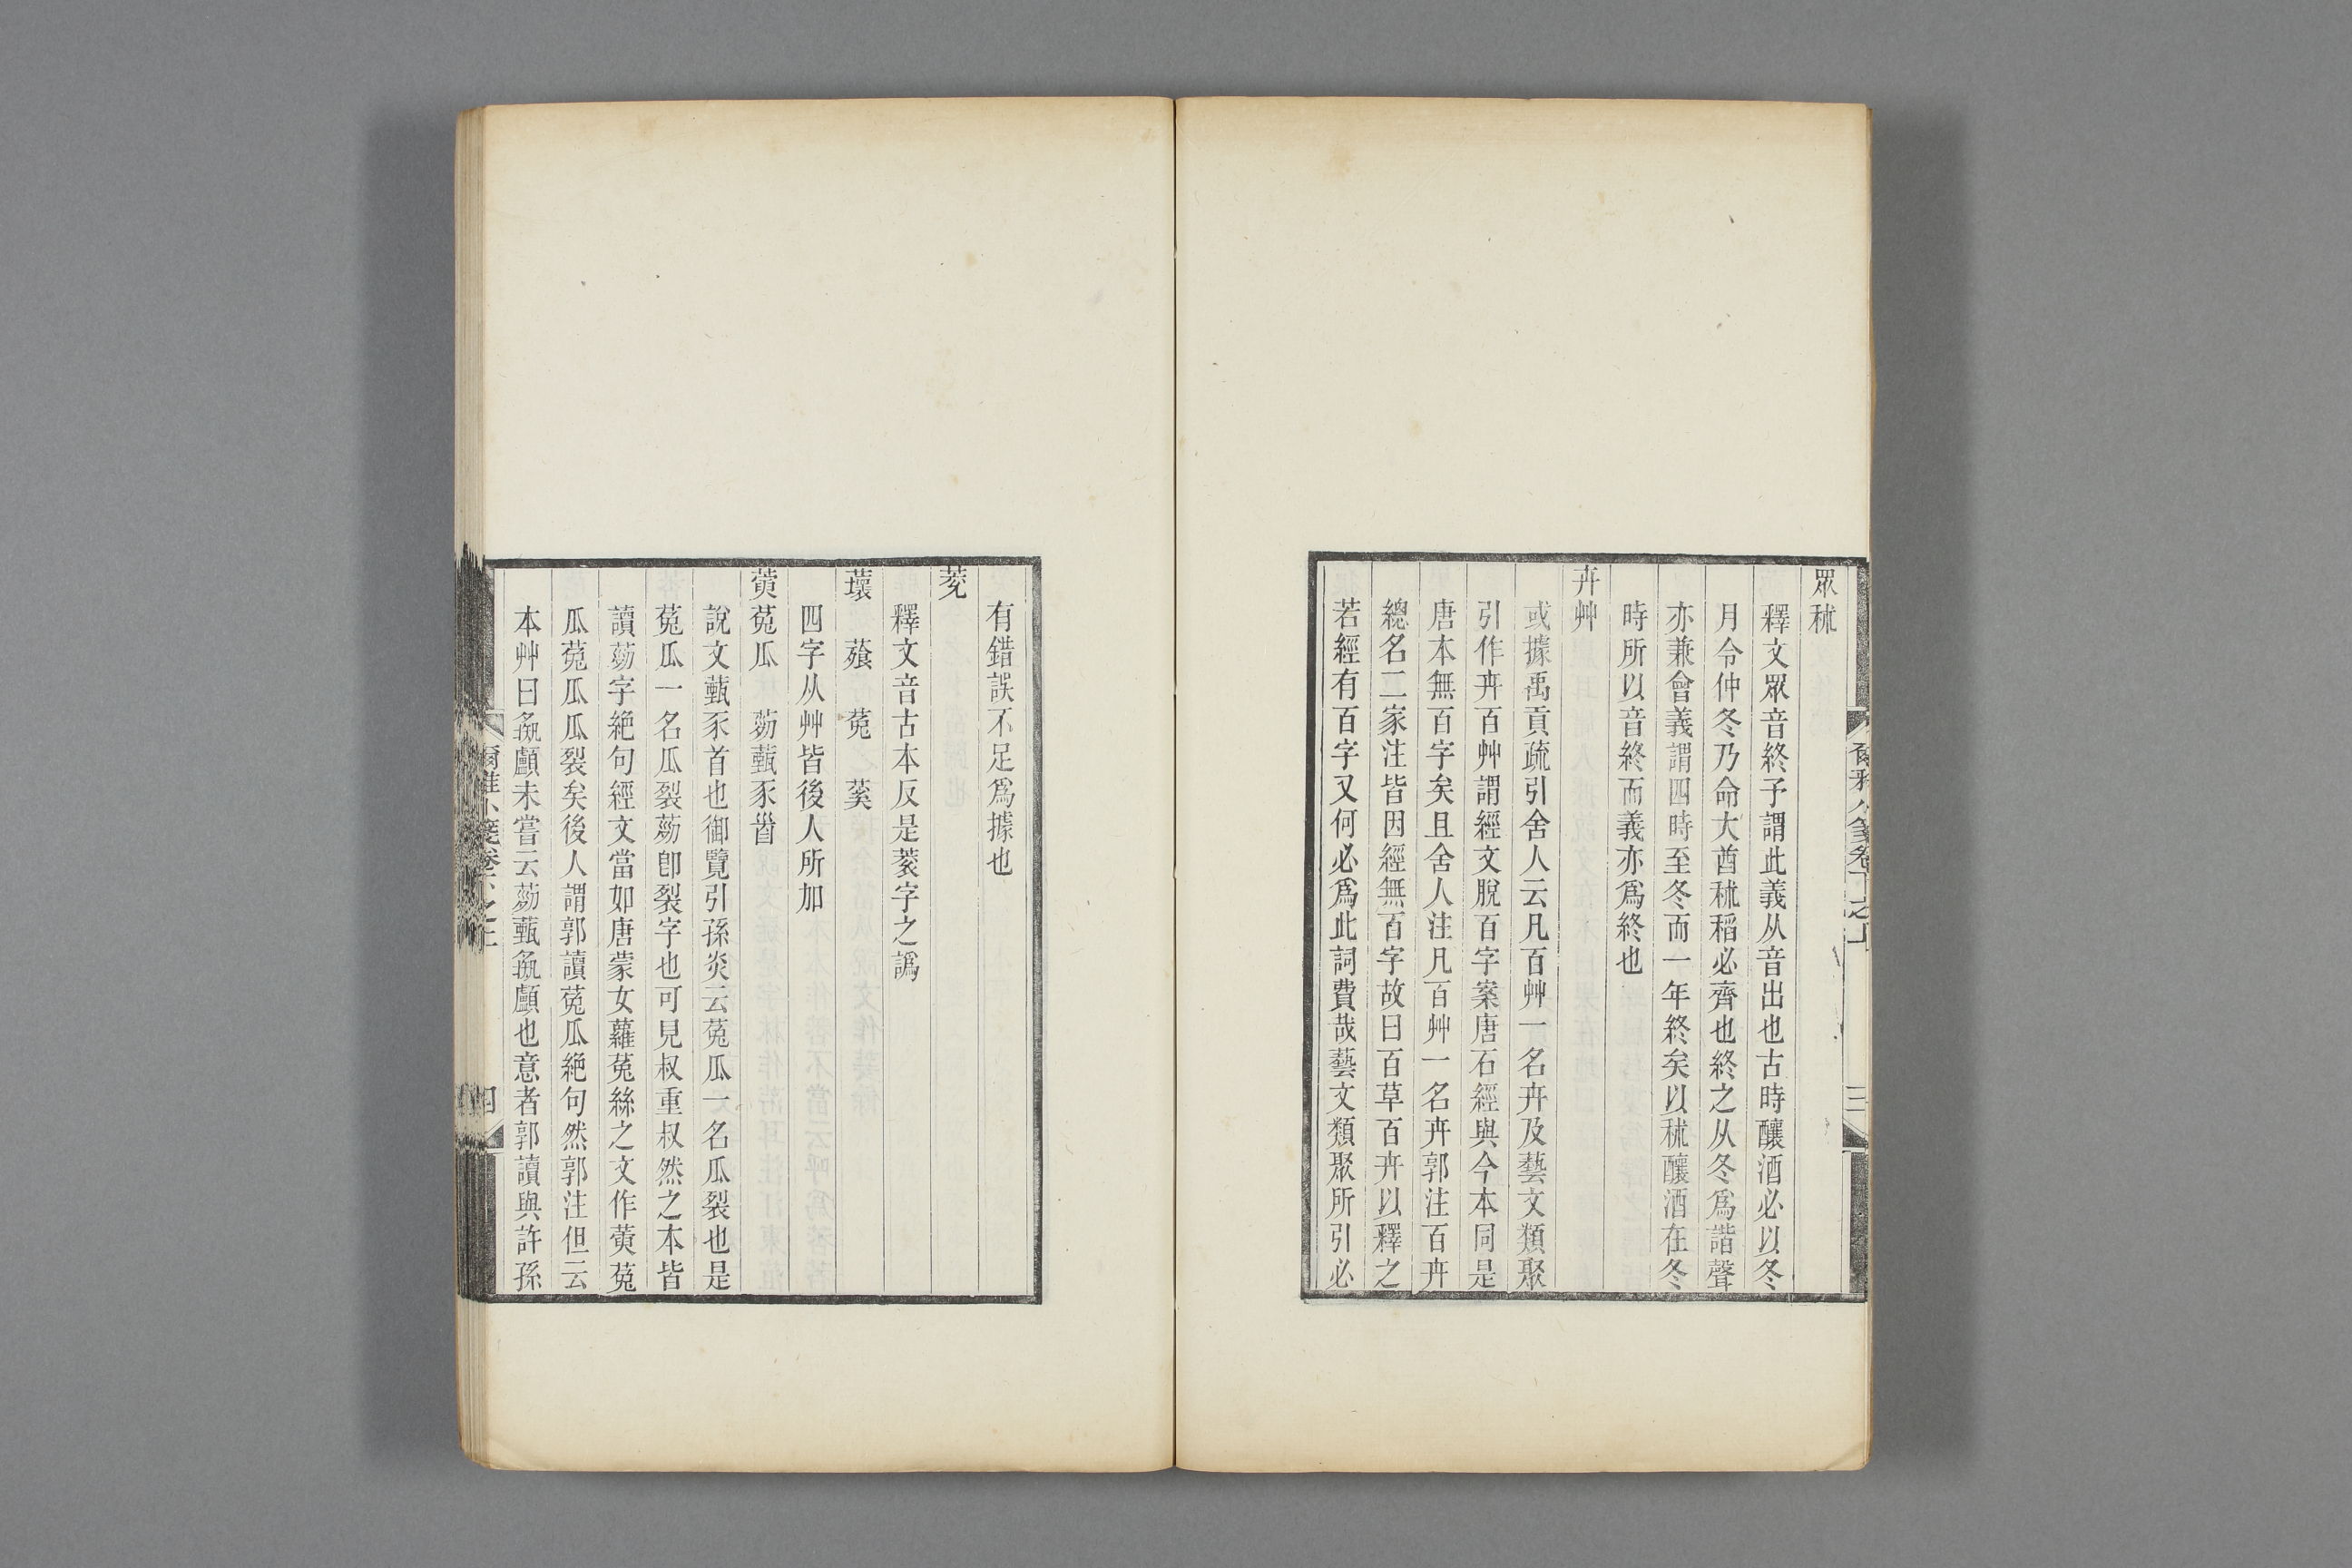 眾秫
釋文眾音終予謂此義从音出也古時釀酒必以冬
月令仲冬乃命大酋秫稻必齊也終之从冬爲諧聲
亦兼會義謂四時至冬而一年終矣以秫釀酒在冬
時所以音終而義亦爲終也
卉艸
或據禹貢疏引舍人云凡百艸一名卉及藝文類聚
引作卉百艸謂經文脫百字案唐石經與今本同是
唐本無百字矣且舍人注凡百艸一名卉郭注百卉
總名二家注皆因經無百字故曰百草百卉以釋之
若經有百字又何必爲此詞費哉藝文類聚所引必
有錯誤不足爲據也
菱
釋文音古本反是蔆字之譌
蘾 蕵 菟 蒵
四字从艸皆後人所加
黃菟瓜 茢薽豕首
說文薽豕首也御覽引孫炎云菟瓜一名瓜裂也是
菟瓜一名瓜裂茢卽裂字也可見叔重叔然之本皆
讀茢字絶句經文當如唐蒙女蘿菟絲之文作黃菟
瓜菟瓜瓜裂矣後人謂郭讀菟瓜絶句然郭注但云
本艸曰彘顱未嘗云茢薽彘顱也意者郭讀與許孫